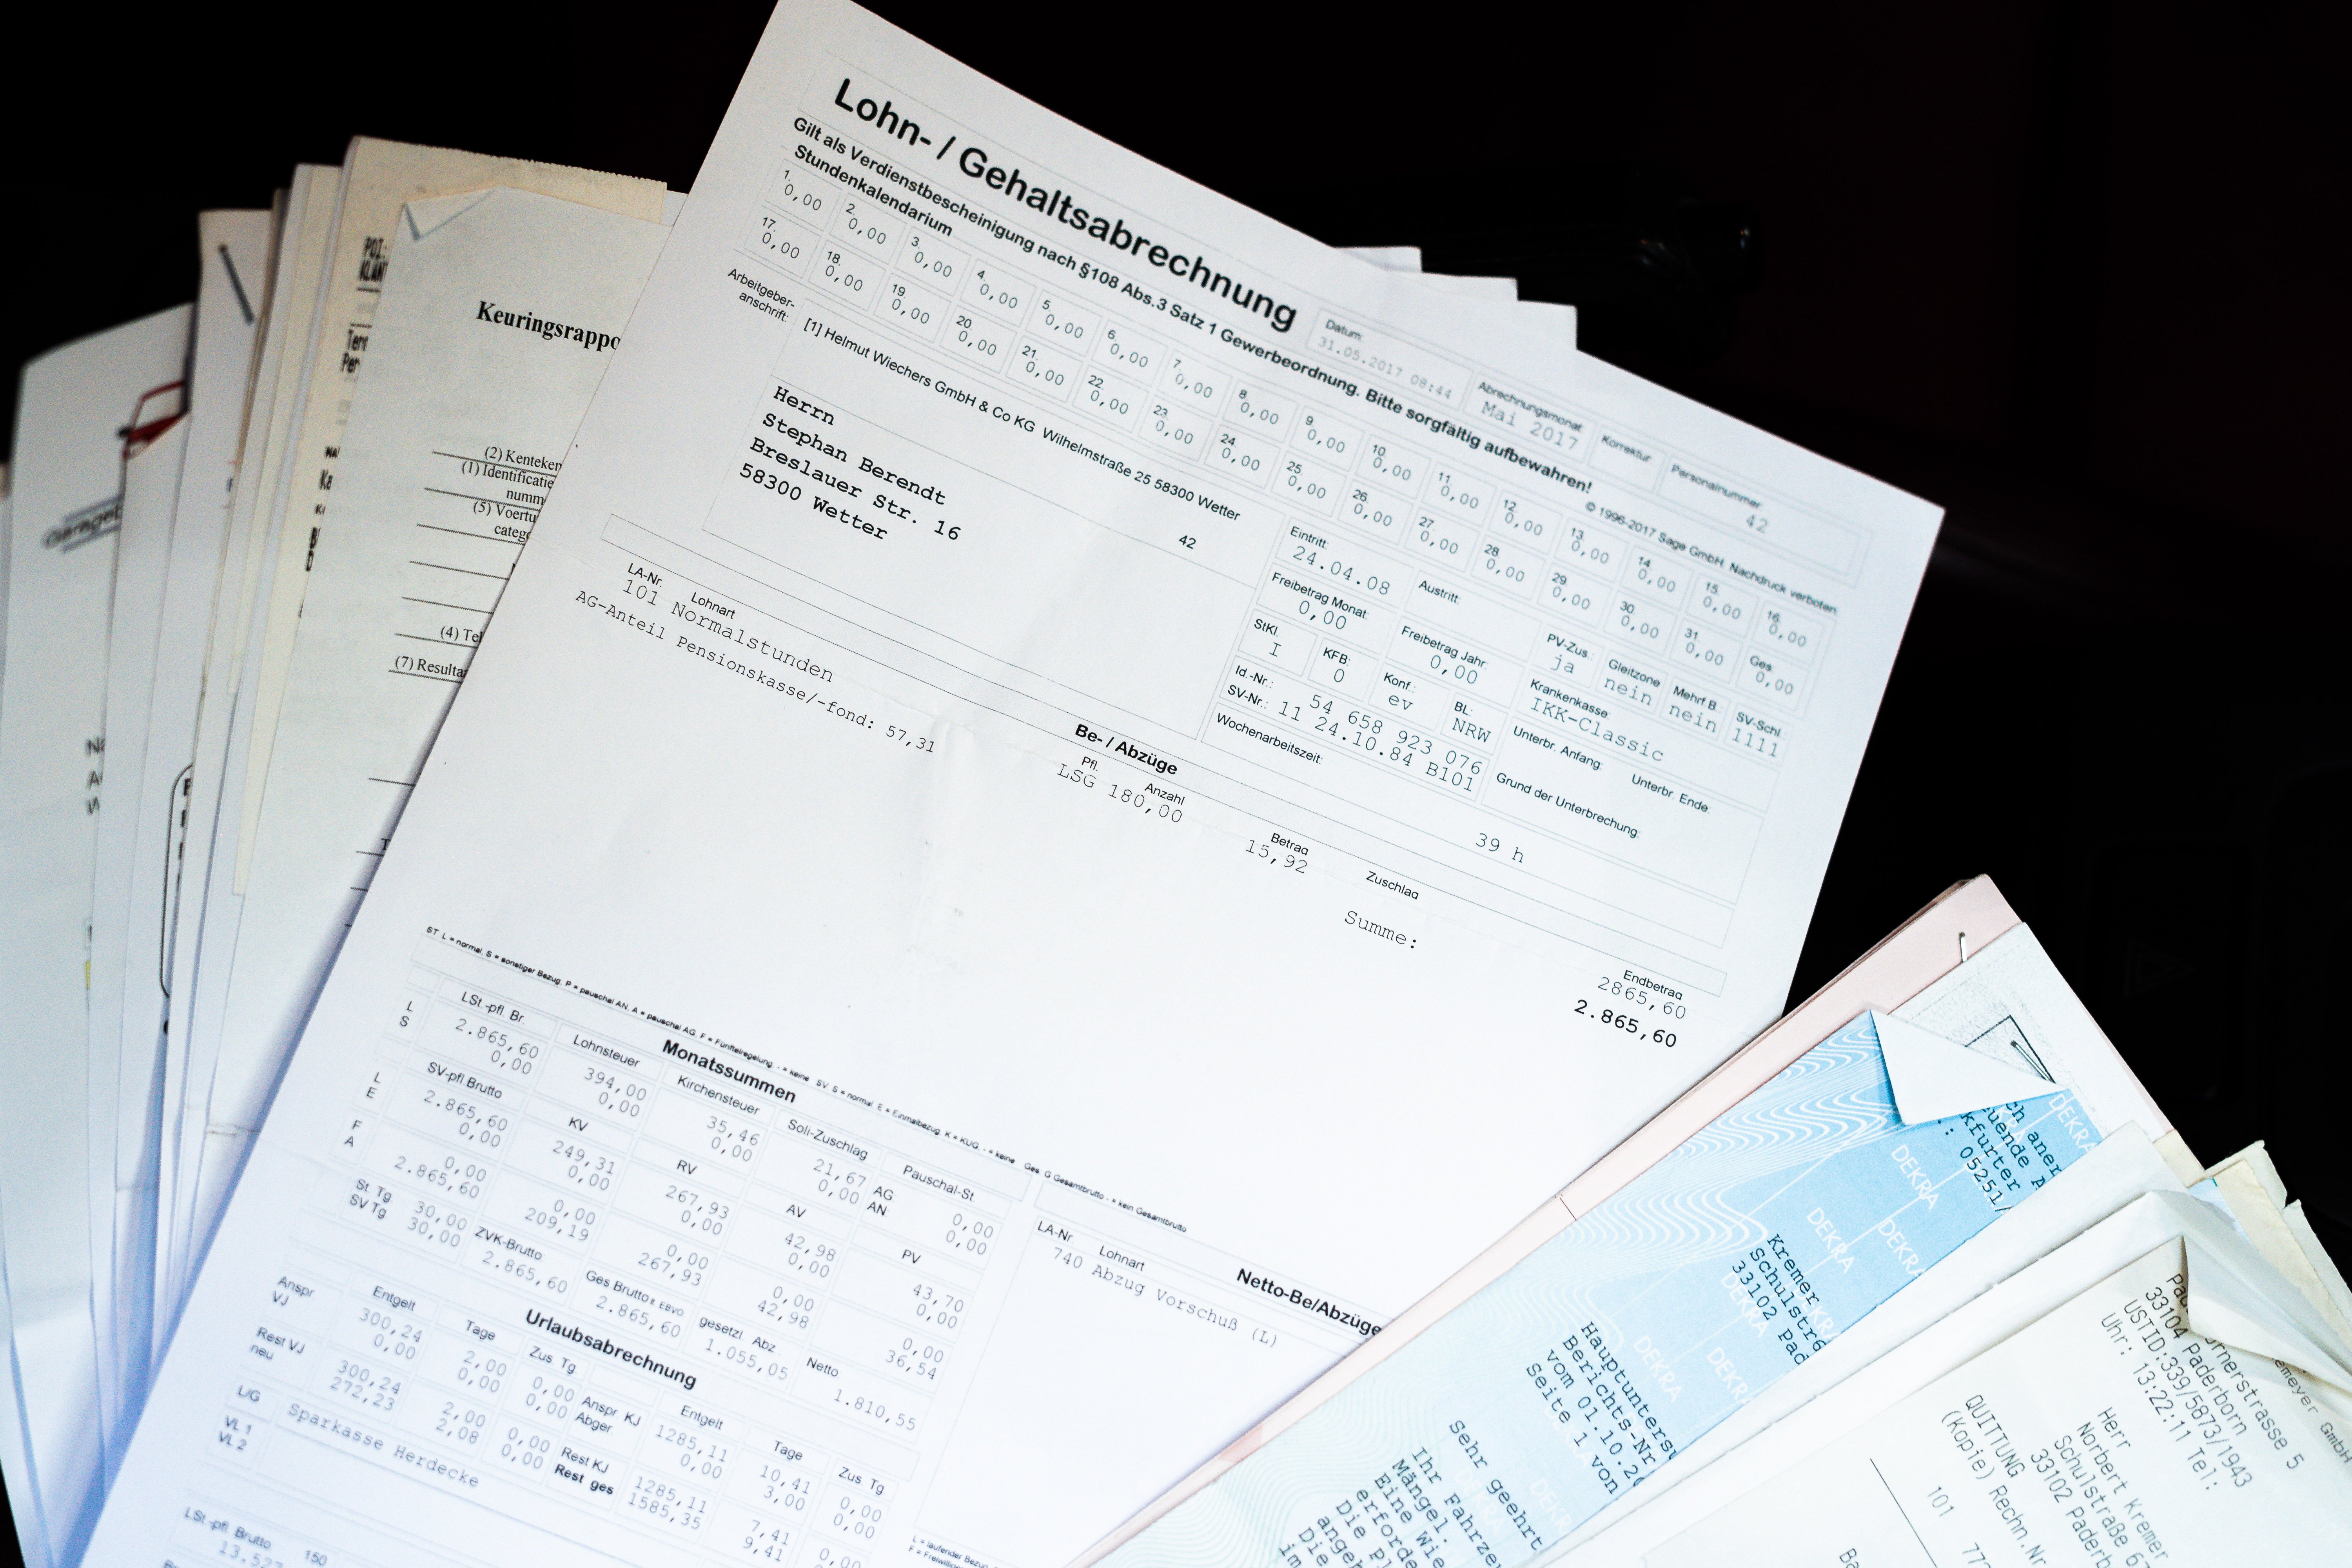 Lohn- / Gehaltsabrechnung
Datum:
31.05.2017 08:44
Abrechnungsmonat
Mai 2017
Korrektur
Personalnummer
42
Gilt als Verdienstbescheinigung nach §108 Abs.3 Satz 1 Gewerbeordnung. Bitte sorgfältig aufbewahren!
© 1996-2017 Sage GmbH. Nachdruck verboten
Stundenkalendarium
1. 2. 3. 4. 5. 6. 7. 8. 9. 10. 11. 12. 13. 14. 15. 16.
0,00 0,00 0,00 0,00 0,00 0,00 0,00 0,00 0,00 0,00 0,00 0,00 0,00 0,00 0,00 0,00
17. 18. 19. 20. 21. 22. 23. 24. 25. 26. 27. 28. 29. 30. 31. Ges.
0,00 0,00 0,00 0,00 0,00 0,00 0,00 0,00 0,00 0,00 0,00 0,00 0,00 0,00 0,00 0,00
Arbeitgeber-
anschrift:
[1] Helmut Wiechers GmbH & Co KG Wilhelmstraße 25 58300 Wetter
42
Herrn
Stephan Berendt
Breslauer Str. 16
58300 Wetter
Eintritt: Austritt: PV-Zus.: Gleitzone Mehrf.B. SV-Schl
24.04.08 ja nein nein 1111
Freibetrag Monat: Freibetrag Jahr: Krankenkasse:
0,00 0,00 IKK-Classic
StKl. KFB: Konf.: BL: Unterbr. Anfang: Unterbr. Ende:
I 0 ev NRW
Id.-Nr.: 54 658 923 076
SV-Nr.: 11 24.10.84 B101
Grund der Unterbrechung:
Wochenarbeitszeit: 39 h
Be- / Abzüge
LA-Nr. Lohnart Pfl. Anzahl Betrag Zuschlag Endbetrag
101 Normalstunden LSG 180,00 15,92 2865,60
AG-Anteil Pensionskasse/-fond: 57,31
Summe: 2.865,60
Monatssummen
LSt.-pfl. Br. Lohnsteuer Kirchensteuer Soli-Zuschlag Pauschal-St
L 2.865,60 394,00 35,46 21,67 AG 0,00
S 0,00 0,00 0,00 0,00 AN 0,00
SV-pfl Brutto KV RV AV PV
L 2.865,60 249,31 267,93 42,98 43,70
E 0,00 0,00 0,00 0,00 0,00
F 0,00 0,00 0,00 0,00 0,00
A 2.865,60 209,19 267,93 42,98 36,54
St Tg 30,00 ZVK-Brutto Ges Brutto gesetzl Abz Netto
SV Tg 30,00 2.865,60 2.865,60 1.055,05 1.810,55
Netto-Be/Abzüge
LA-Nr Lohnart
740 Abzug Vorschuß (L)
Urlaubsabrechnung
Entgelt Tage Zus Tg Entgelt Tage Zus Tg
Anspr 300,24 2,00 0,00 Anspr KJ 1285,11 10,41 0,00
VJ 0,00 0,00 0,00 Abger 0,00 3,00 0,00
Rest VJ 300,24 2,00 0,00 Rest KJ 1285,11 7,41 0,00
neu 272,23 2,08 0,00 Rest ges 1585,35 9,41
L/G Sparkasse Herdecke
VL 1
VL 2
LSt-pfl. Brutto 150
13.527
Keuringsrappo
(2) Kenteken
(1) Identificatie
numm
(5) Voertu
categ
(4) Tel
(7) Resulta
DEKRA
Kremer
Schulstr6
33102 Pad
Hauptunters
Berichts-Nr
vom 01.10.20
Seite 1 von
Sehr geehrt
Ihr Fahrze
Mängel.
Eine Wie
erforde
Die Pl
angeh
Die
im
33104 Paderborn
USTID:339/5873/1943
Uhr: 13:22:11 Tel:
Herr
Norbert Kremer
Schulstraße 67
33102 Paderb
QUITTUNG
(Kopie) Rechn.Nr
101